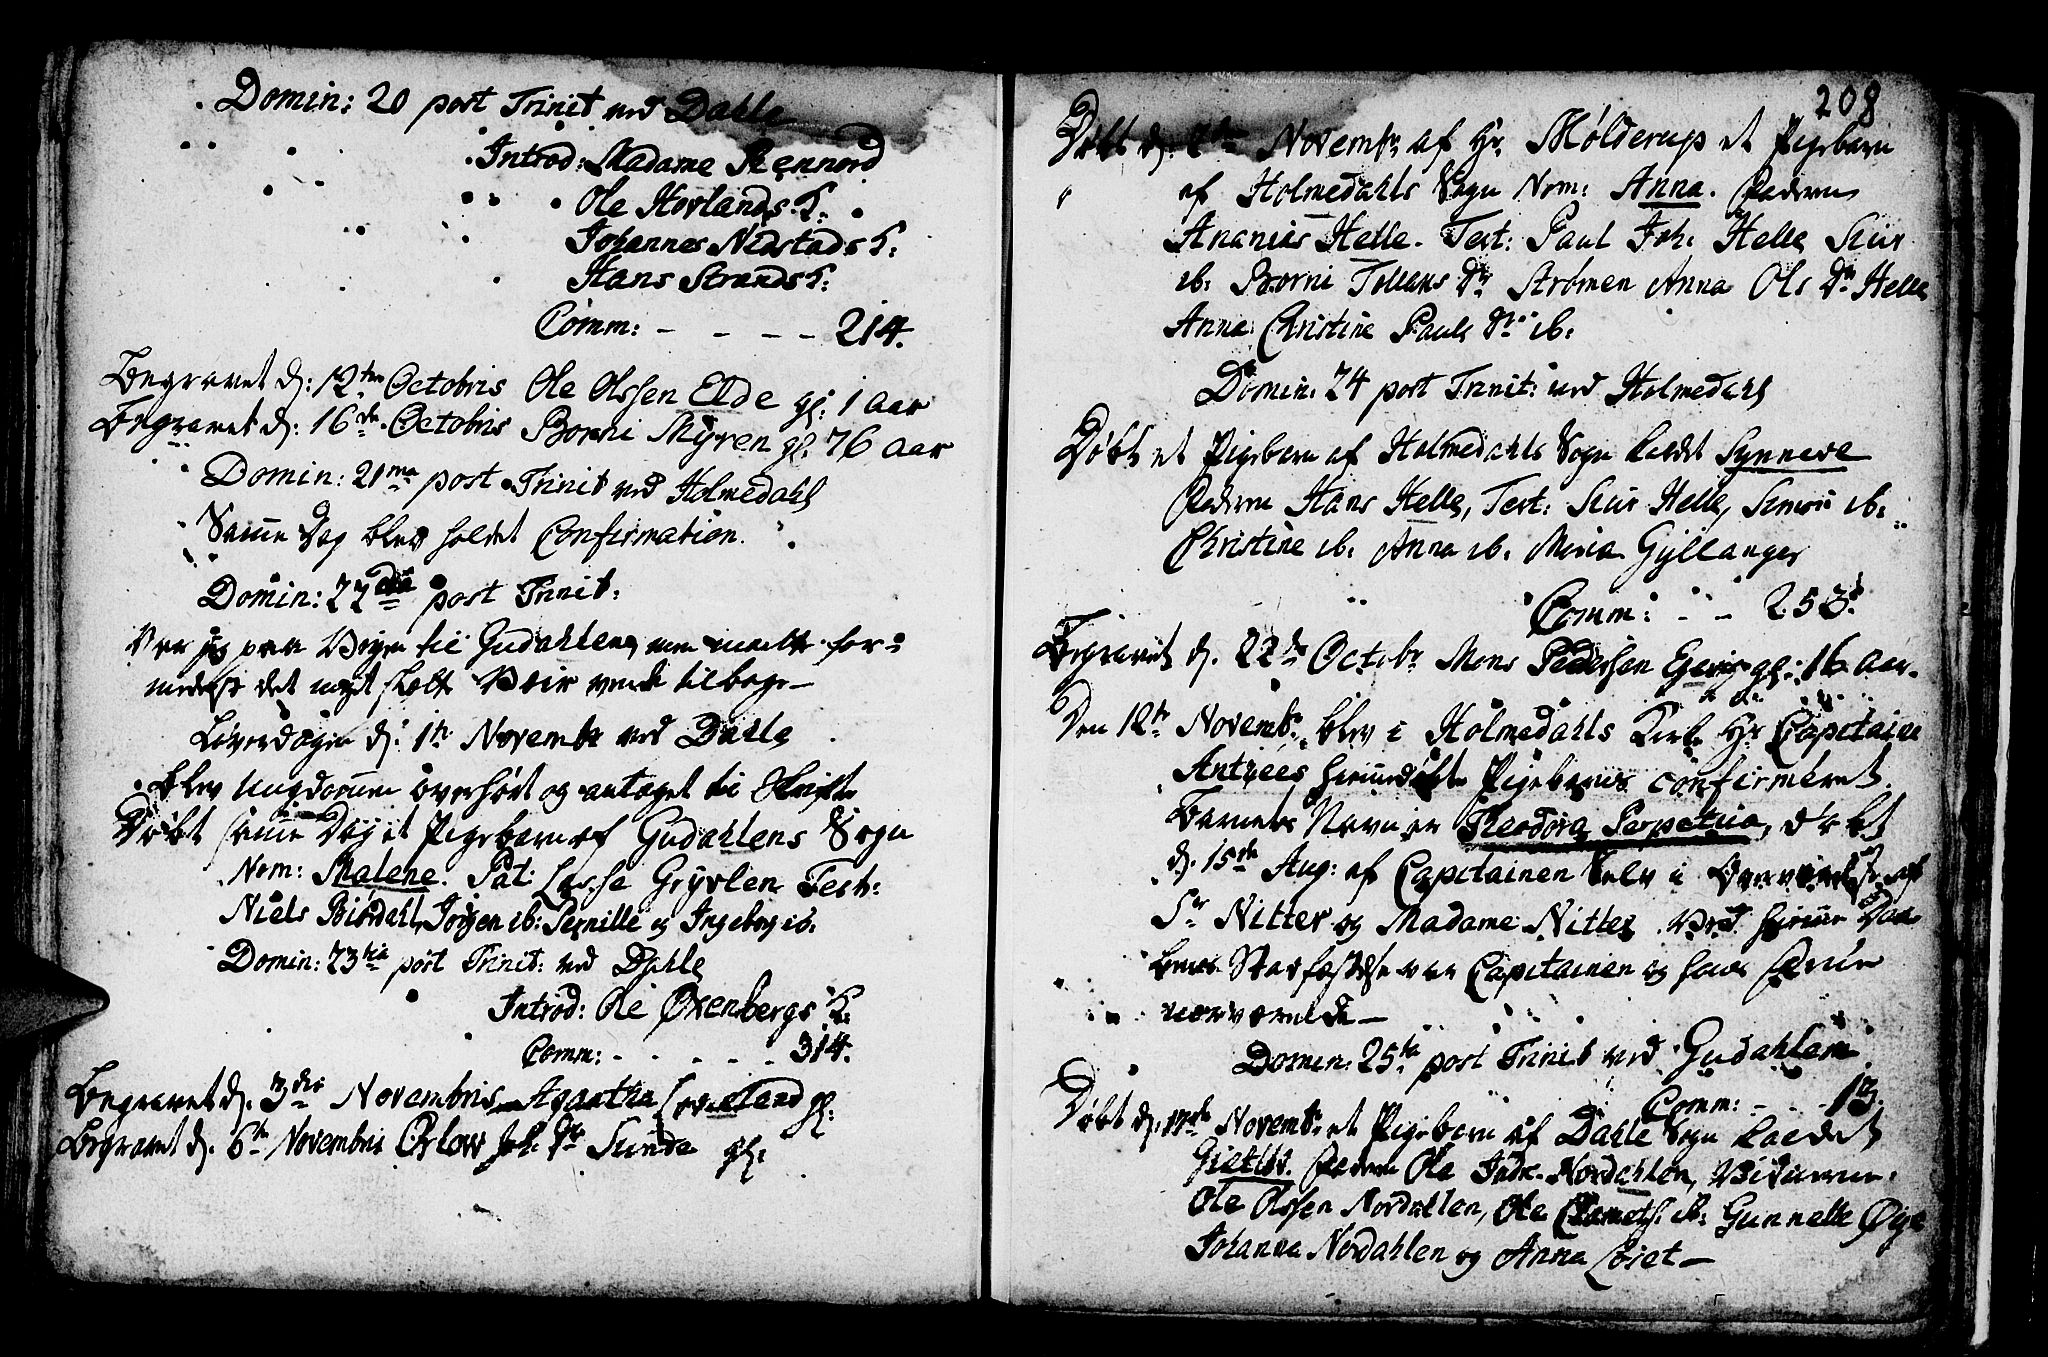 Domin: 20 post Trinit ved Dahle
Introd: Madame Rennord
Ole Hovlands K:
Johannes Nedstads K:
Hans Strands K:
Comm: - - - - 214.
Begravet d: 12te Octobris Ole Olssen Elde gl: 1 Aar
Begravet d: 16de Octobris Borni Myren gl: 76 Aar
Domin: 21ma post Trinit ved Holmedahl
Samme Dag blev holdet Confirmation.
Domin: 22da post Trinit:
Var jeg paa Veyen til Gudahlen, men maatte for-
medelst det meget Veir vende tilbage-
Løverdagen d: 1te Novembr ved Dahle
blev Ungdommen overhørt og antaget til Skrifte
Døbt samme Dag et Pigebarn af Gudahlens Sogn
Nom: Malene. Pat: Lasse Gryvlen Test:
Niels Birdahl, Jørgen ib: Pernille og Ingeborg ib.
Domin: 23tia post Trinit: ved Dahle
Introd: Ole Oxenbergs K:
Comm: - - - - - 314.
Begravet d. 3die Novembris Agantha gl:
Begravet d. 6te Novembris Joh. Dr Sunde gl:
208
Døbt d: Novembr af Hr. Mølderup et Pigebarn
af Holmedahls Sogn Nom: Anna. Faderen
Ananias Helle. Test: Paul Joh: Helle Siur
ib: Borni Tollevs Dr Strømen Anna Ols Dr Helle
Anna Christine Pauls Dr ib:
Domin: 24 post Trinit: ved Holmedahl
Døbt et Pigebarn af Holmedahls Sogn kaldet Synneve
Faderen Hans Helle, Test: Siur Helle, Simon ib:
Christine ib. Anna ib. Maria Gyllanger
Comm: - - 253.
Begravet d. 22de Octobr Mons Pedersen gl: 16 Aar.
Den 12te Novembr. blev i Holmedahls Kirke Hr Capitain
Antzées hiemmedøbte Pigebarns confirmeret
Barnets Navn er Theodora Perpetua, døbt
d. 15de Aug: af Capitainen Selv i Overværelse af
Sr Nitter og Madame Nitter. Ved hiemme Daa-
bens Stadfæstelse var Capitainen og hans Frue
nærværende-
Domin: 25ta post Trinit ved Gudahlen
Comm: - - - 13.
Døbt d: 17de Novembr: et Pigebarn af Dahle Sogn kaldet
Giertrv. Faderen Ole Nordahlen,
Ole Olssen Nordahlen, Ole ib: Gunnelle Øye
Johanna Nordahlen og Anna Løset-